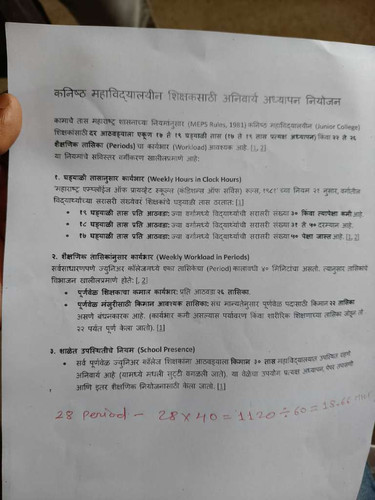 कनिष्ठ महाविद्यालयीन शिक्षकसाठी अनिवार्य अध्यापन नियोजन
कामाचे तास महाराष्ट्र शासनाच्या नियमांनुसार (MEPS Rules, 1981) कनिष्ठ महाविद्यालयीन (Junior College)
शिक्षकांसाठी दर आठवड्याला एकूण १७ ते १९ घड्याळी तास (१७ ते १९ तास प्रत्यक्ष अध्यापन) किंवा २२ ते २६
शैक्षणिक तासिका (Periods) चा कार्यभार (Workload) आवश्यक आहे. [1, 2]
या नियमाचे सविस्तर वर्गीकरण खालीलप्रमाणे आहे:
१. घड्याळी तासानुसार कार्यभार (Weekly Hours in Clock Hours)
'महाराष्ट्र एम्प्लॉईज ऑफ प्रायव्हेट स्कूल्स (कंडिशन्स ऑफ सर्व्हिस) रूल्स, १९८१' च्या नियम २१ नुसार, वर्गातील
विद्यार्थ्यांच्या सरासरी संख्येवर शिक्षकांचे घड्याळी तास ठरतात: [1]
• १९ घड्याळी तास प्रति आठवडा: ज्या वर्गामध्ये विद्यार्थ्यांची सरासरी संख्या ३० किंवा त्यापेक्षा कमी आहे.
• १८ घड्याळी तास प्रति आठवडा: ज्या वर्गामध्ये विद्यार्थ्यांची सरासरी संख्या ३१ ते ५० दरम्यान आहे.
• १७ घड्याळी तास प्रति आठवडा: ज्या वर्गामध्ये विद्यार्थ्यांची सरासरी संख्या ५० पेक्षा जास्त आहे. [1]
२. शैक्षणिक तासिकांनुसार कार्यभार (Weekly Workload in Periods)
सर्वसाधारणपणे ज्युनिअर कॉलेजमध्ये एका तासिकेचा (Period) कालावधी ४० मिनिटांचा असतो. त्यानुसार तासिकांचे
विभाजन खालीलप्रमाणे होते: [, 2]
• पूर्णवेळ शिक्षकाचा कमाल कार्यभार: प्रति आठवडा २६ तासिका.
• पूर्णवेळ मंजुरीसाठी किमान आवश्यक तासिका: संच मान्यतेनुसार पूर्णवेळ पदासाठी किमान २२ तासिका
असणे बंधनकारक आहे. (कार्यभार कमी असल्यास पर्यावरण किंवा शारीरिक शिक्षणाच्या तासिका जोडून तो
२२ पर्यंत पूर्ण केला जातो). [1]
३. शाळेत उपस्थितीचे नियम (School Presence)
• सर्व पूर्णवेळ ज्युनिअर कॉलेज शिक्षकांना आठवड्याला किमान ३० तास महाविद्यालयात उपस्थित राहणे
अनिवार्य आहे (यामध्ये मधली सुट्टी वगळली जाते). या वेळेचा उपयोग प्रत्यक्ष अध्यापन, पेपर तपासणी
आणि इतर शैक्षणिक नियोजनासाठी केला जातो. [1]
28 Period - 28 × 40 = 1120 ÷ 60 = 18.66